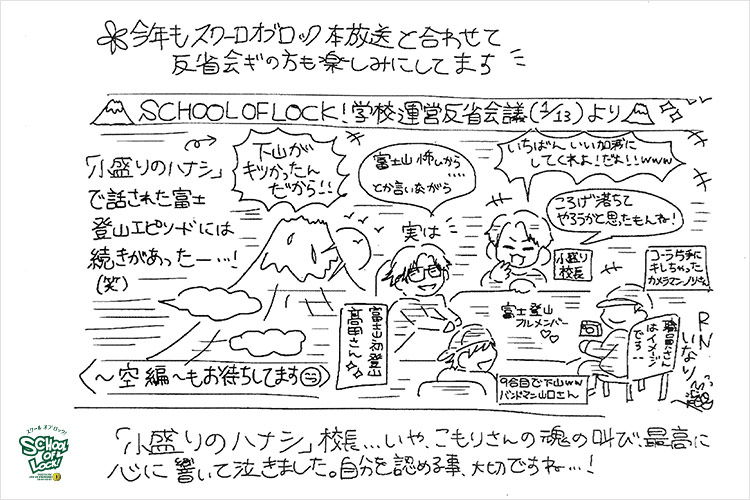 今年もスクールオブロック本放送と合わせて
反省会ギの方も楽しみにしてまち
SCHOOL OF LOCK!学校運営反省会議(1/13)より
「小盛りのハナシ」
で話された富士
登山エピソードには
続きがあったー…!
(笑)
下山が
キツかったん
だから!!
富士山怖しから
‥‥
とか言いながら
いちばんいい加減に
してくれよ!だよ!!www
ころげ落ちて
やろうかと思ったもんね!
実は
小盛り
校長
コーラ片手に
キレちゃった
カメラマンノリさん
富士山初登山
高田さん
富士登山
フルメンバー♡♡
職員さん
はイメージ
でう…
9合目で下山ww
バンドマン山口さん
R.N.いなり
〈〜空編〜もお待ちしてます
「小盛りのハナシ」校長…いや、こもりさんの魂の叫び、最高に
心に響いて泣きました。自分を認める事、大切ですね…!
スクールオブロック!
SCHOOL
OF
LOCK!